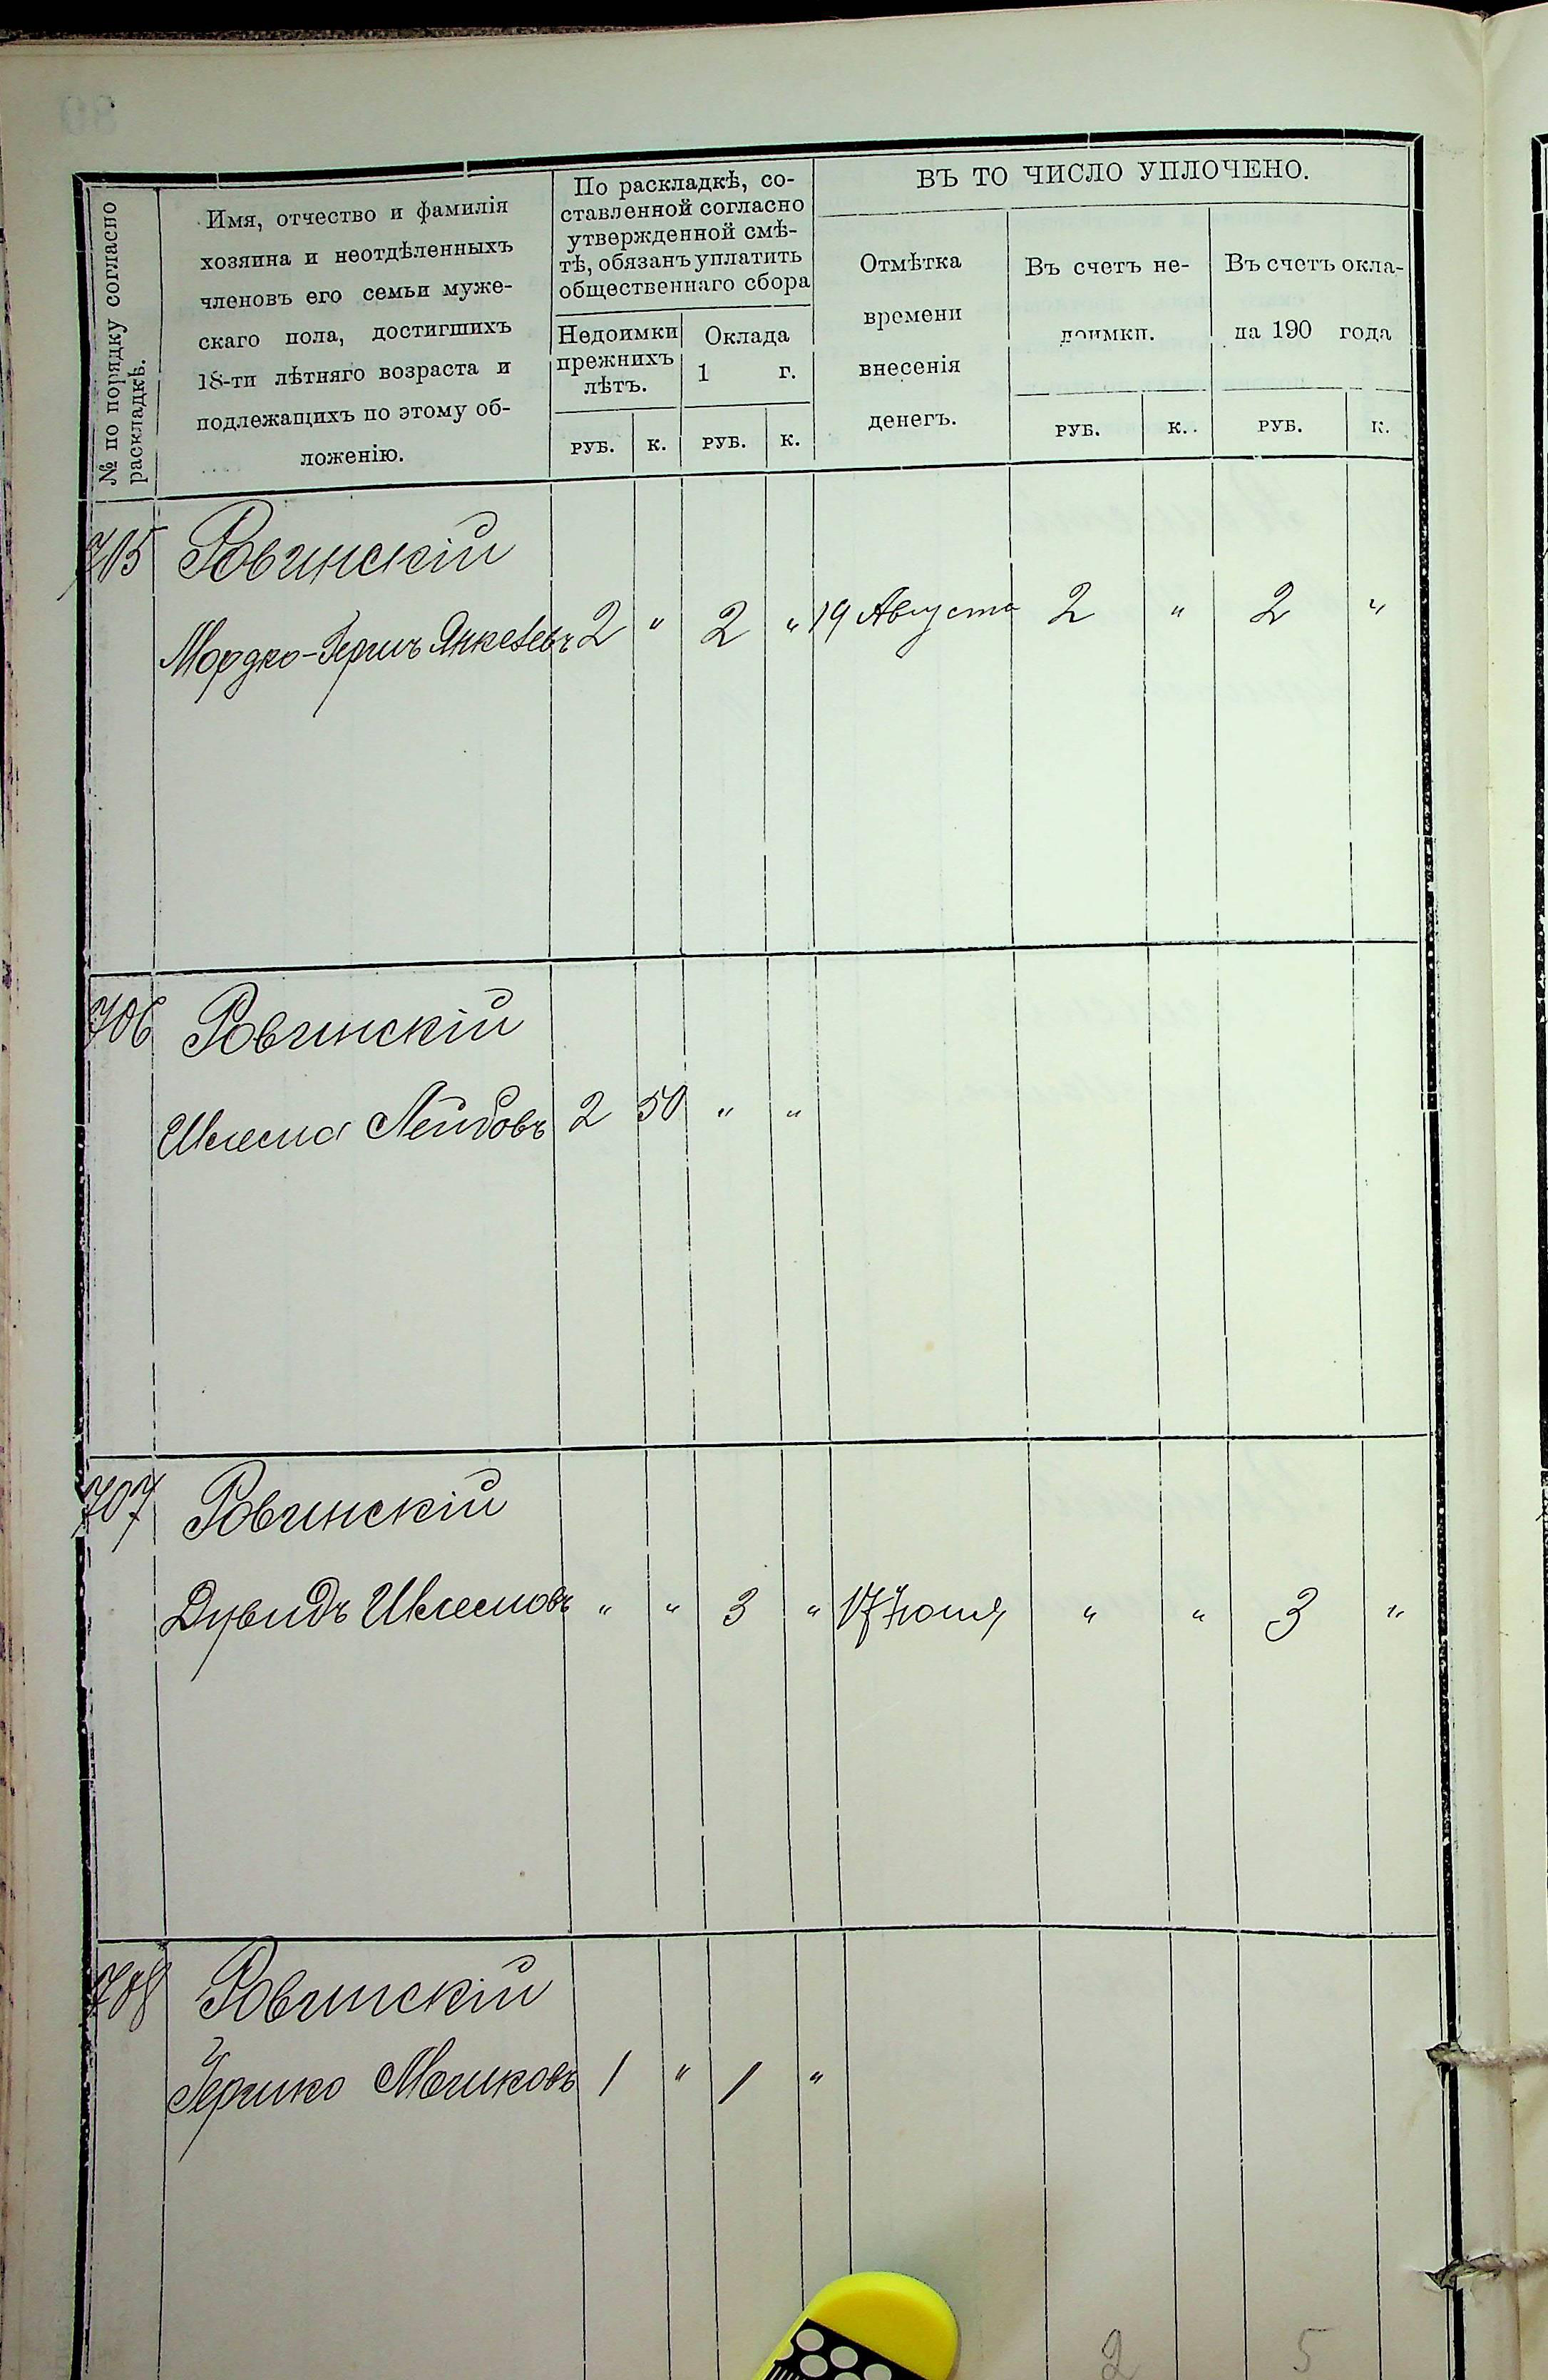 № по порядку согласно раскладкѣ.
Имя, отчество и фамилія
хозяина и неотдѣленныхъ
членовъ его семьи муже-
скаго пола, достигшихъ
18-ти лѣтняго возраста и
подлежащихъ по этому об-
ложенію.
По раскладкѣ, со-
ставленной согласно
утвержденной смѣ-
тѣ, обязанъ уплатить
общественнаго сбора
Недоимки
прежнихъ
лѣтъ.
Оклада
1 г.
РУБ. К. РУБ. К.
ВЪ ТО ЧИСЛО УПЛОЧЕНО.
Отмѣтка
времени
внесенія
денегъ.
Въ счетъ не-
доимки.
Въ счетъ окла-
да 190 года
РУБ. К. РУБ. К.
705 Ровинскій
Мордко-Гершъ Янкелевъ 2 " 2 " 19 Августа 2 " 2 "
706 Ровинскій
Шлема Лейбовъ 2 50 " "
707 Ровинскій
Дувидъ Шлемовъ " " 3 " 17 Іюня " " 3 "
708 Ровинскій
Гершко Мошковъ 1 " 1 "
2 5